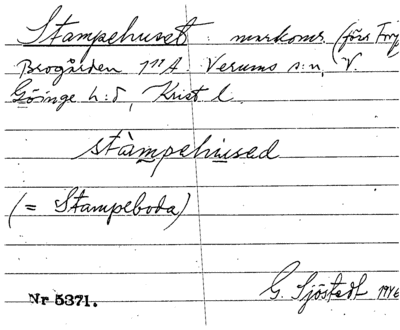 Stampehuset : markomr. (förr
Brogården 1¹¹ A Verums s:n, V.
Göinge h:d, Krist l.
stàmpehùsed
(= Stampeboda)
G. Sjöstedt 1946
Nr 5371.